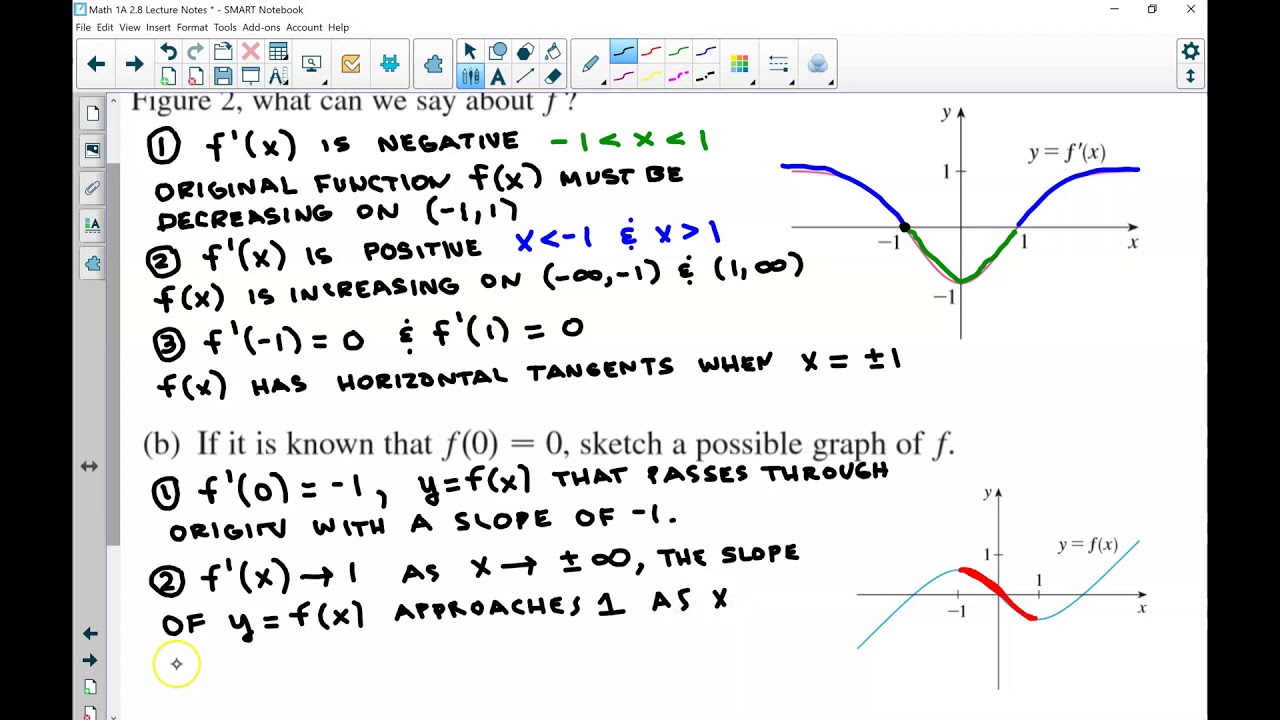 Math 1A 2.8 Lecture Notes * - SMART Notebook
File Edit View Insert Format Tools Add-ons Account Help
Figure 2, what can we say about f?
① f'(x) IS NEGATIVE -1 < x < 1
ORIGINAL FUNCTION f(x) MUST BE
DECREASING ON (-1,1)
② f'(x) IS POSITIVE x<-1 & x>1
f(x) IS INCREASING ON (-∞,-1) & (1,∞)
③ f'(-1) = 0 & f'(1) = 0
f(x) HAS HORIZONTAL TANGENTS WHEN x = ±1
y
y = f'(x)
1
−1
1
x
−1
(b) If it is known that f(0) = 0, sketch a possible graph of f.
① f'(0) = -1, y=f(x) THAT PASSES THROUGH
ORIGIN WITH A SLOPE OF -1.
② f'(x) → 1 AS x → ±∞, THE SLOPE
OF y = f(x) APPROACHES 1 AS x
y
1
y = f(x)
1
−1
x